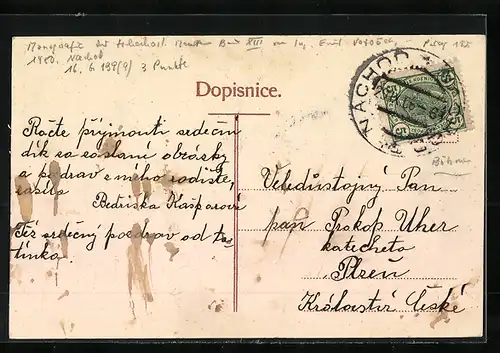 Monografie der tschechosl. Marken Band XIII von Ing. Emil Votoček
1980. Náchod
16. b 139(9) 3 Punkte
Dopisnice.
NÁCHOD
5
Böhmen
Račte přijmouti srdečný
dík za zaslané obrázky
a pozdrav z mého rodiště,
zasílá
Bedřiška Kašparová
Též srdečný pozdrav od ta-
tínka.
Veledůstojný Pan
pan Prokop Uher
katecheta
Plzeň
Království České